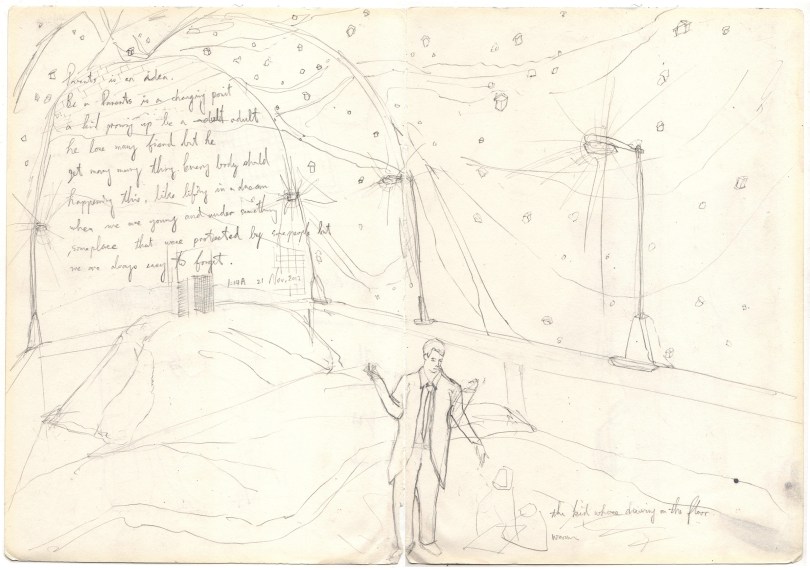 Parents is an idea.
be a Parents is a changing point
a kid growing up be a adult
he love many friend but he
get many many they knowy body should
happening this. like lifting in a dream
when we are young and under something
someplace that were protected by some people but
we are always easy to forget.
21 Nov, 2012
the kid whose drawing on the floor